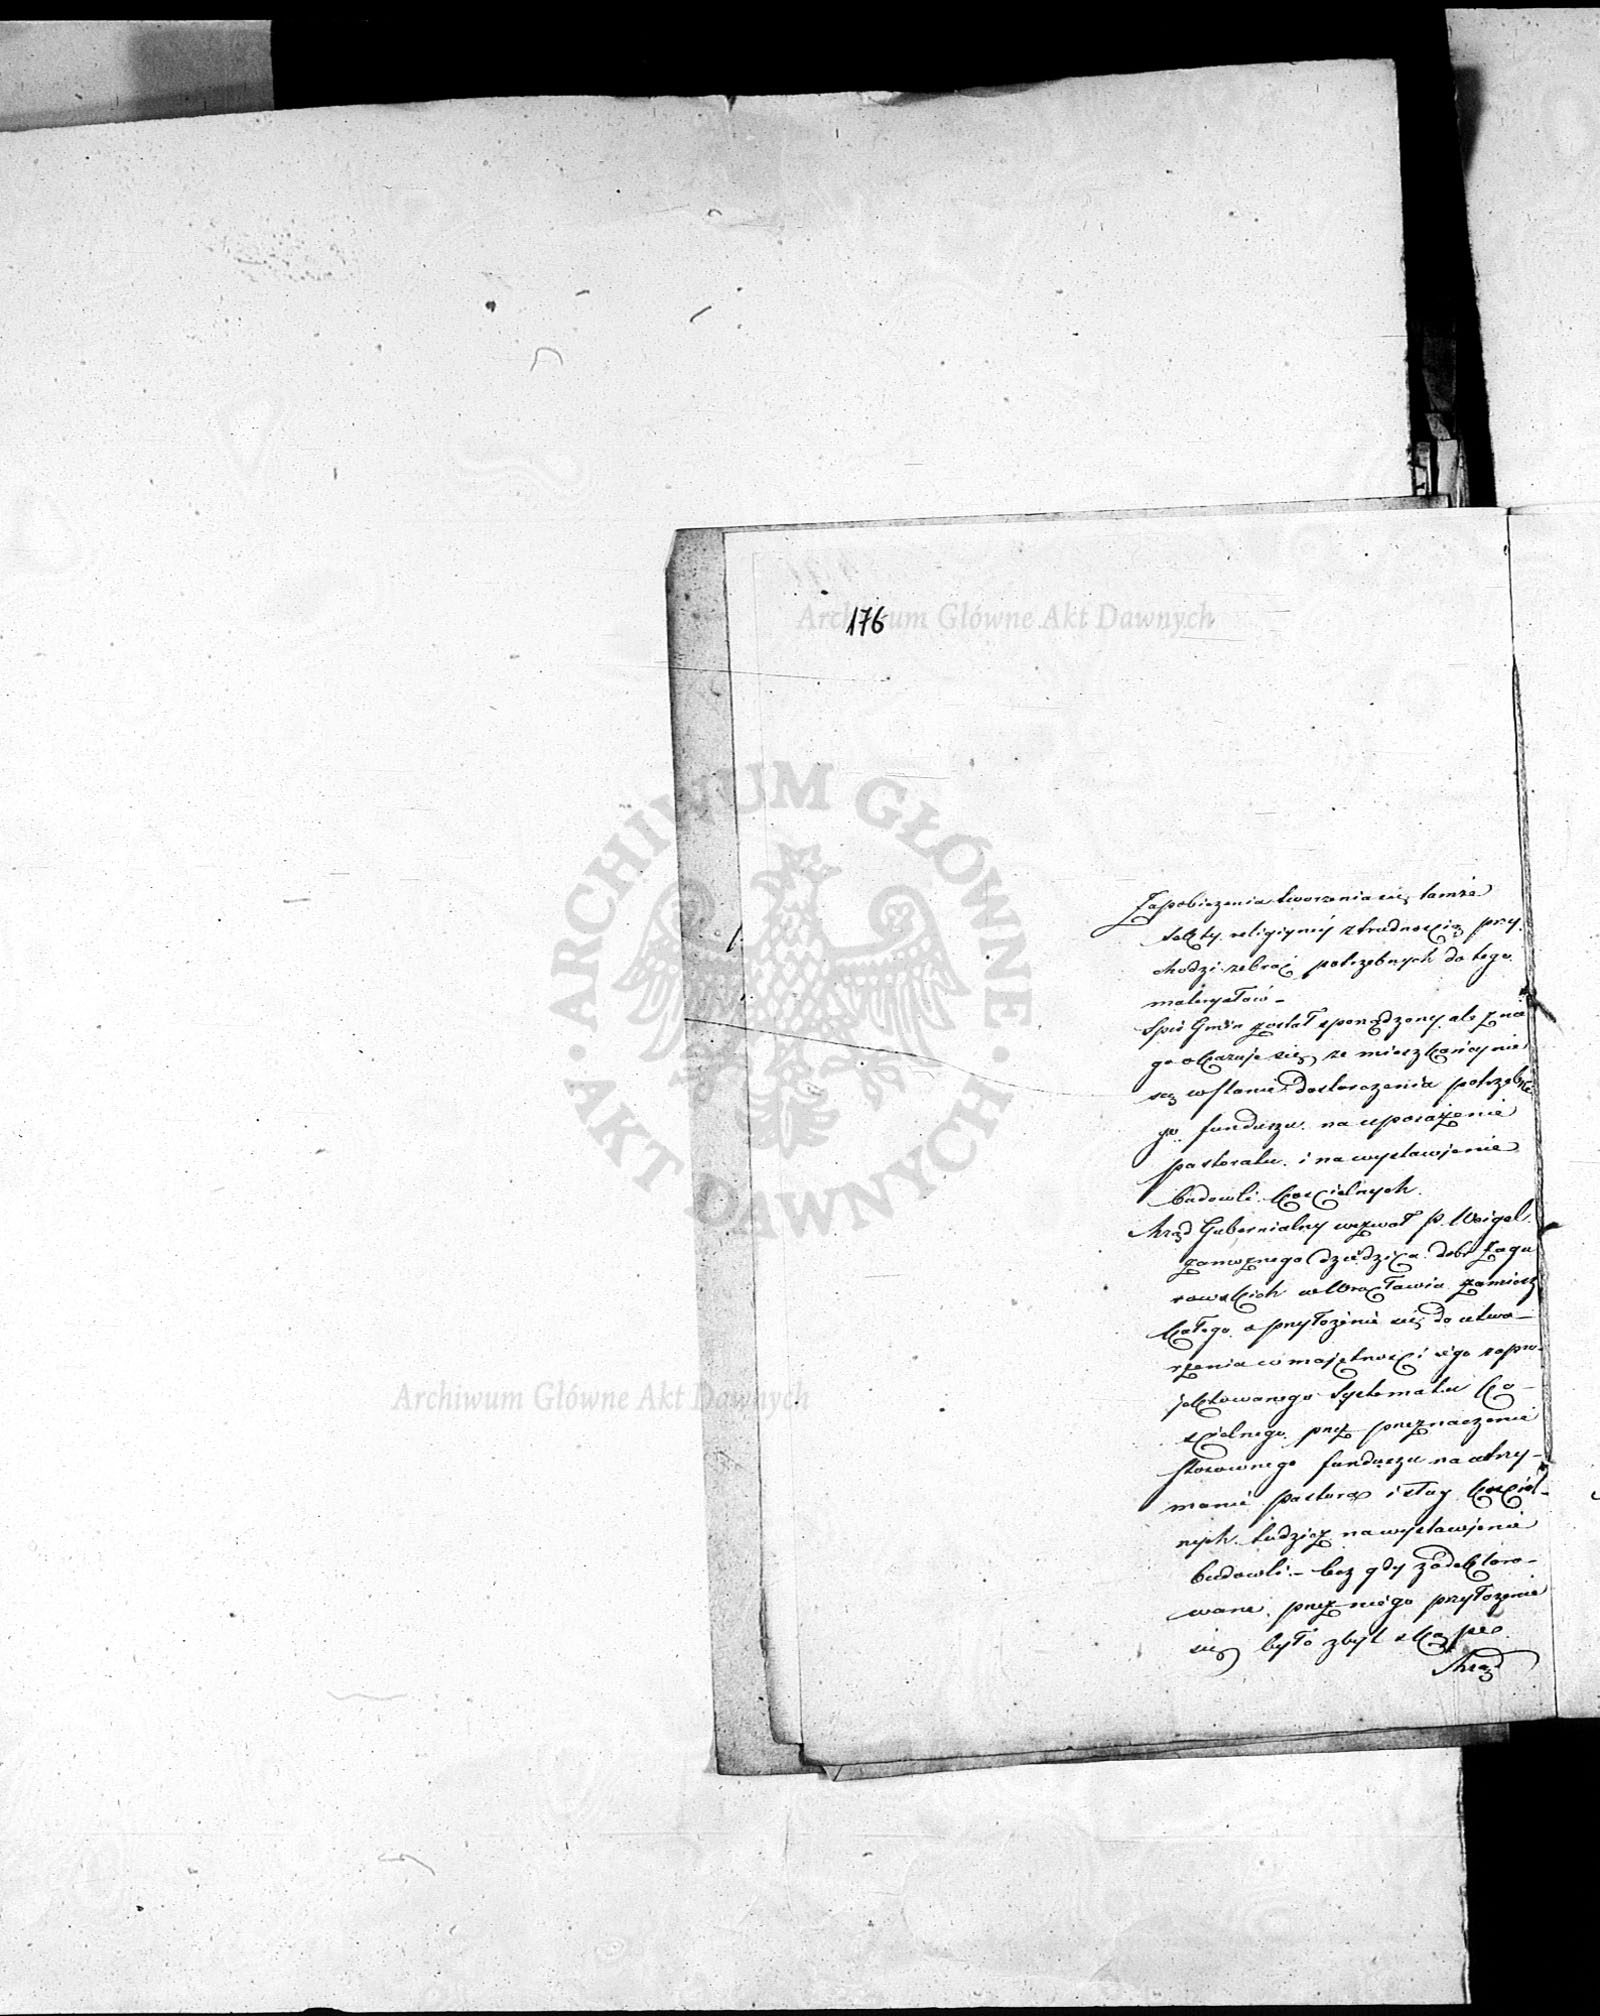 176
Archiwum Główne Akt Dawnych
ARCHIWUM GŁÓWNE AKT DAWNYCH
Zapobieżenia tworzenia się tamże
sekty religijnéj z trudnością przy
chodzi zebrać potrzebnych do tego
materyałów –
Spis Gmin został sporządzony ale z nie
go okazuje się, że mieszkańcy nie
są w stanie dostarczenia potrzebne
go funduszu na uposażenie
pastoratu i na wystawienie
budowli kościelnych.
Rząd Gubernialny wezwał P. Weigel
zamożnego dziedzica dóbr Zagu
rowskich w Wrocławiu zamiesz
kałego o przyłożenie się do utwo–
rzenia w majętności jego zapro–
jektowanego Systematu Ko–
ścielnego przez przeznaczenie
stosownego funduszu na utrzy–
manie pastora i sług kościel–
nych tudzież na wystawienie
budowli – lecz gdy zadeklaro–
wane przez niego przyłożenie
się było zbyt skąpe
Rząd
Archiwum Główne Akt Dawnych